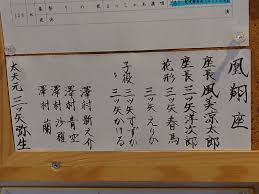 凰翔座
座長 風美涼太郎
座長 三ツ矢洋次郎
花形 三ツ矢春馬
三ツ矢えりか
子役 三ツ矢すずか
三ツ矢かける
澤村新之介
澤村青空
澤村沙羅
澤村蘭
太夫元 三ツ矢弥生